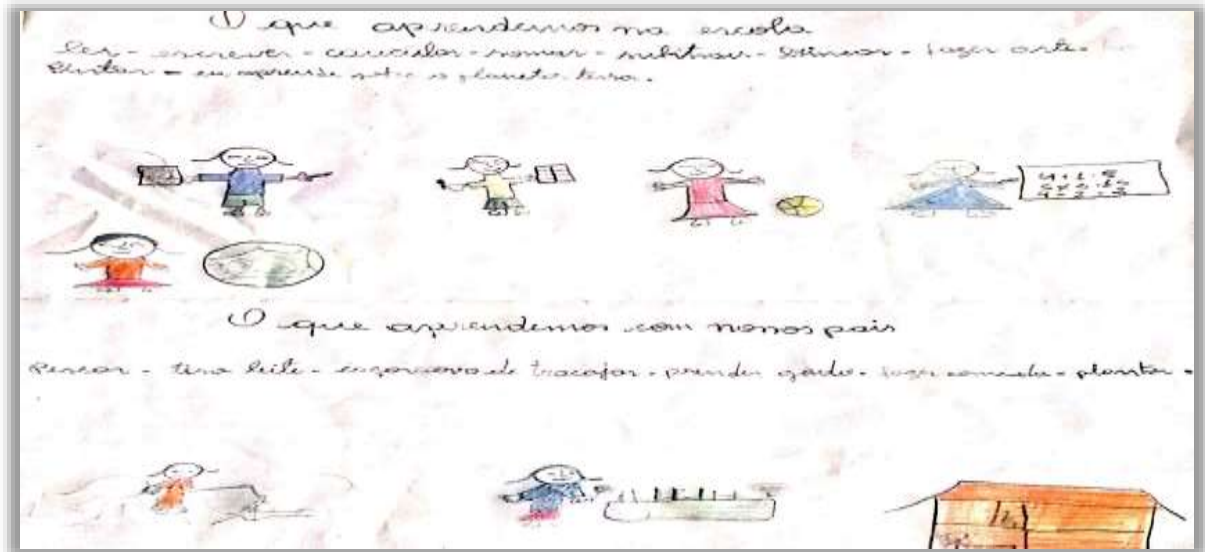 O que aprendemos na escola
ler - escrever - caucular - somar - subitrair - brincar - fazer arte -
Pintar - eu aprende sobre o planeta terra.
O que aprendemos com nossos pais
Pescar - tira leite - ovo de tracajar - prender gado - fazer comida - plantar -